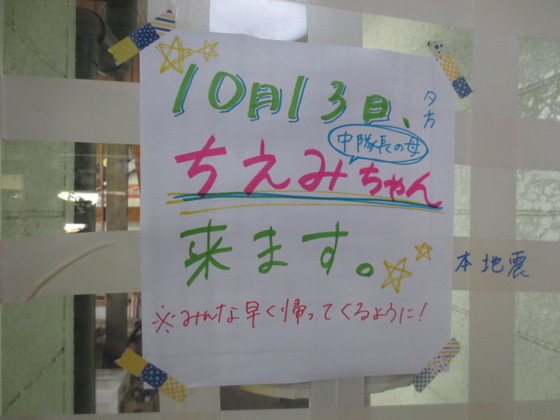 10月13日、
夕方
中隊長の母
ちえみちゃん
来ます。
※みんな早く帰ってくるように!
本地震